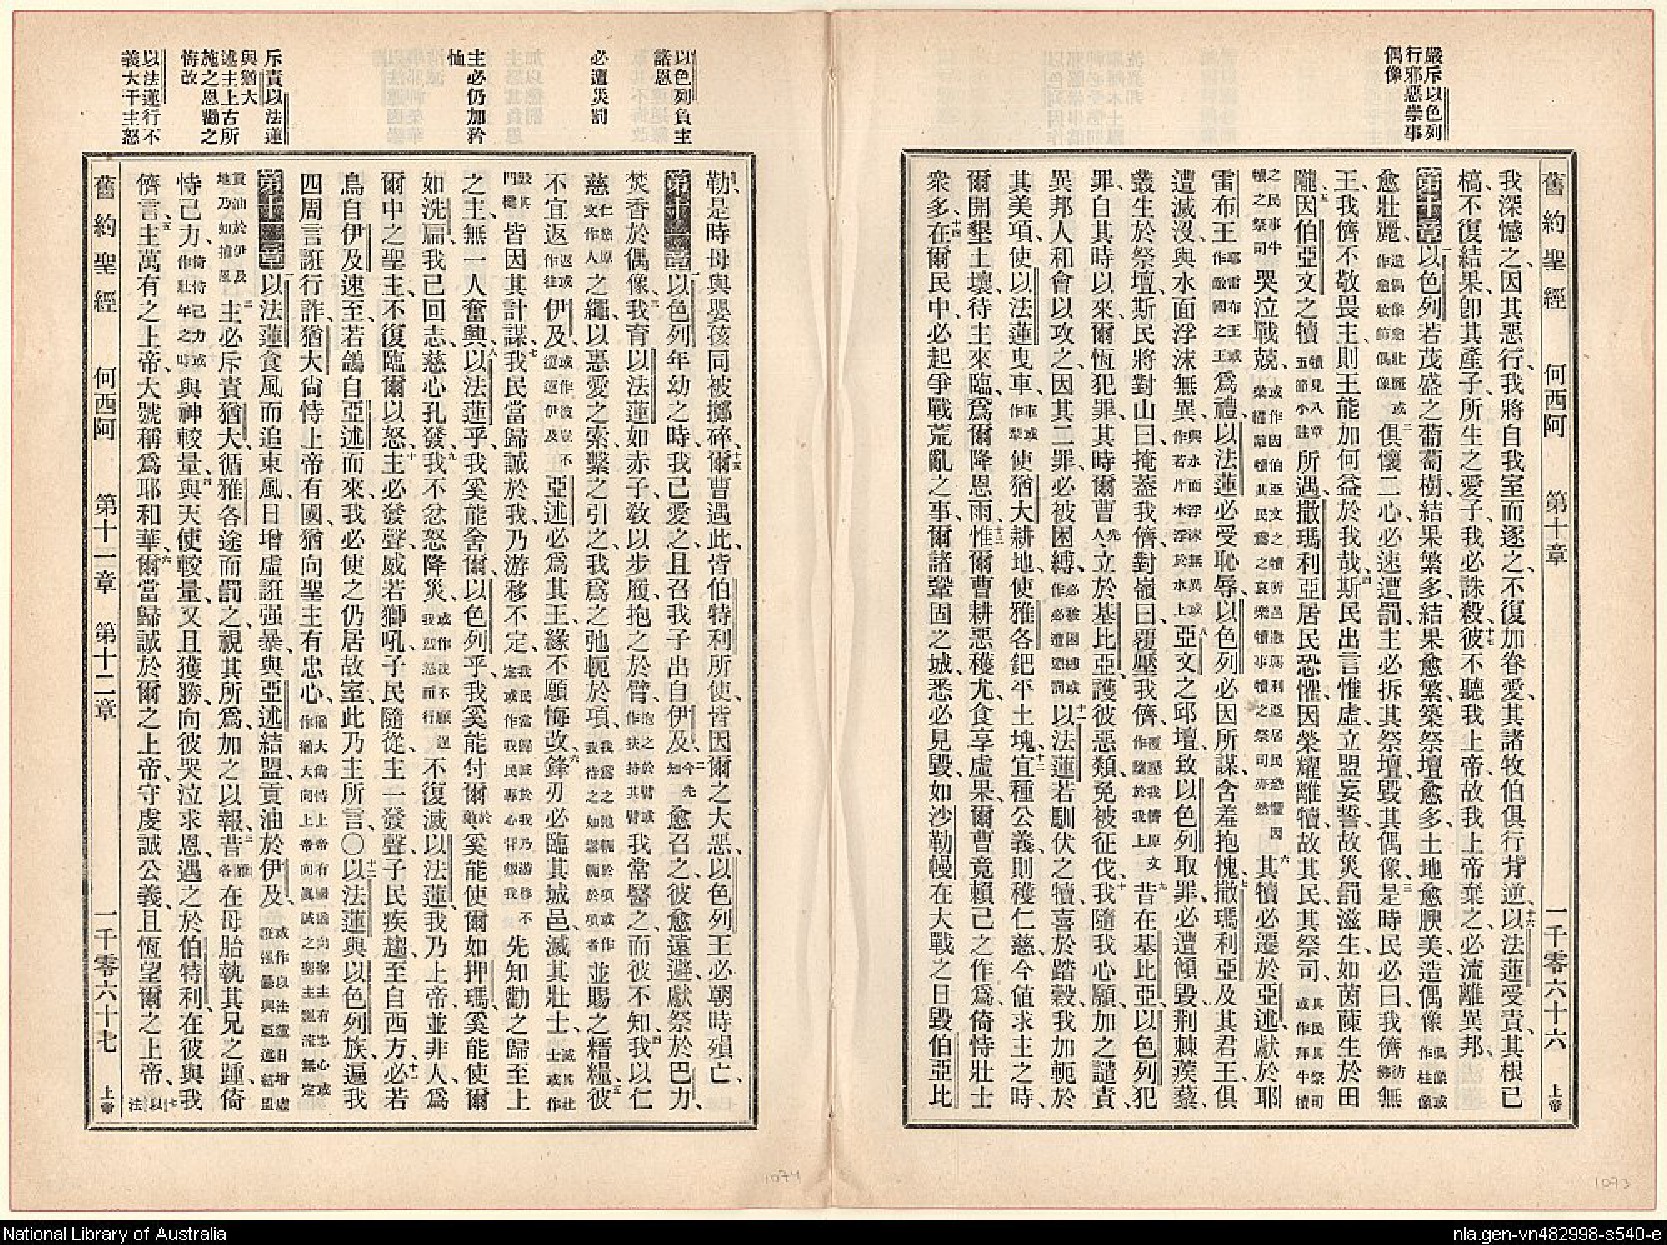 嚴斥以色列
行邪惡崇事
偶像
舊約聖經 何西阿 第十章 一千零六十六 上帝
我深憾之因其惡行我將自我室而逐之不復加眷愛其諸牧伯俱行背逆十六以法蓮受責其根已
槁不復結果卽其產子所生之愛子我必誅殺十七彼不聽我上帝故我上帝棄之必流離異邦
第十章一以色列若茂盛之葡萄樹結果繁多結果愈繁築祭壇愈多土地愈腴美造偶像偶像或作柱像
愈壯麗二俱懷二心必速遭罰主必拆其祭壇毀其偶像三是時民必曰我儕無
王我儕不敬畏主則王能加何益於我哉四斯民出言惟虛立盟妄誓故災罰滋生如茵蔯生於田
隴五因伯亞文之犢犢見八章五節小註所遇撒瑪利亞居民恐懼因榮耀離犢故其民其祭司
哭泣戰兢六其犢必遷於亞述獻於耶
雷布王耶雷布王或作敵國之王爲禮以法蓮必受恥辱以色列必因所謀含羞抱愧七撒瑪利亞及其君王俱
遭滅沒與水面浮沫無異與水面浮沫無異或作若片木浮於水上八亞文之邱壇致以色列取罪必遭傾毀荆棘蒺藜
叢生於祭壇斯民將對山曰掩蓋我儕對嶺曰覆壓我儕九昔在基比亞以色列犯
罪自其時以來爾恆犯罪其時爾曹先人立於基比亞護彼惡類免被征伐十我隨我心願加之譴責
異邦人和會以攻之因其二罪必被困縛十一以法蓮若馴伏之犢喜於踏穀我加軛於
其美項使以法蓮曳車使猶大耕地使雅各鈀平土塊十二宜種公義則穫仁慈今值求主之時
爾開墾土壤待主來臨爲爾降恩雨十三惟爾曹耕惡穫尤食享虛果爾曹竟賴己之作爲倚恃壯士
衆多十四在爾民中必起爭戰荒亂之事爾諸鞏固之城悉必見毀如沙勒幔在大戰之日毀伯亞比
以色列負主
諸恩
必遭災罰
主必仍加矜
恤
斥責以法蓮
與猶大
述主上古所
施之恩勸之
悔改
以法蓮行不
義大干主怒
勒是時母與嬰孩同被擲碎十五爾曹遇此皆伯特利所使皆因爾之大惡以色列王必朝時殞亡
第十一章一以色列年幼之時我已愛之且召我子出自伊及二愈召之彼愈遠避獻祭於巴力
焚香於偶像三我育以法蓮如赤子敎以步履抱之於臂我常醫之而彼不知四我以仁
慈之繩以恩愛之索繫之引之我爲之弛軛於項並賜之精糧五彼
不宜返伊及亞述必爲其王緣不願悔改六鋒刃必臨其城邑滅其壯士
皆因其計謀七我民當歸誠於我乃游移不定先知勸之歸至上
之主無一人奮興八以法蓮乎我奚能舍爾以色列乎我奚能付爾於敵奚能使爾如押瑪奚能使爾
如洗扁我已回志慈心孔發九我不忿怒降災不復滅以法蓮我乃上帝並非人爲
爾中之聖主不復臨爾以怒十主必發聲威若獅吼子民隨從主一發聲子民疾趨至自西方十一必若
鳥自伊及速至若鴿自亞述而來我必使之仍居故室此乃主所言〇十二以法蓮與以色列族遍我
四周言誑行詐猶大尙恃上帝有國猶向聖主有忠心
第十二章一以法蓮食風而追東風日增虛誑强暴與亞述結盟貢油於伊及
二主必斥責猶大循雅各途而罰之視其所爲加之以報三昔雅各在母胎執其兄之踵倚
恃己力與神較量四與天使較量又且獲勝向彼哭泣求恩遇之於伯特利在彼與我
儕言五主萬有之上帝大號稱爲耶和華六爾當歸誠於爾之上帝守虔誠公義且恆望爾之上帝七以法
舊約聖經 何西阿 第十一章 第十二章 一千零六十七 上帝
1074
1073
National Library of Australia
nla.gen-vn482998-s540-e